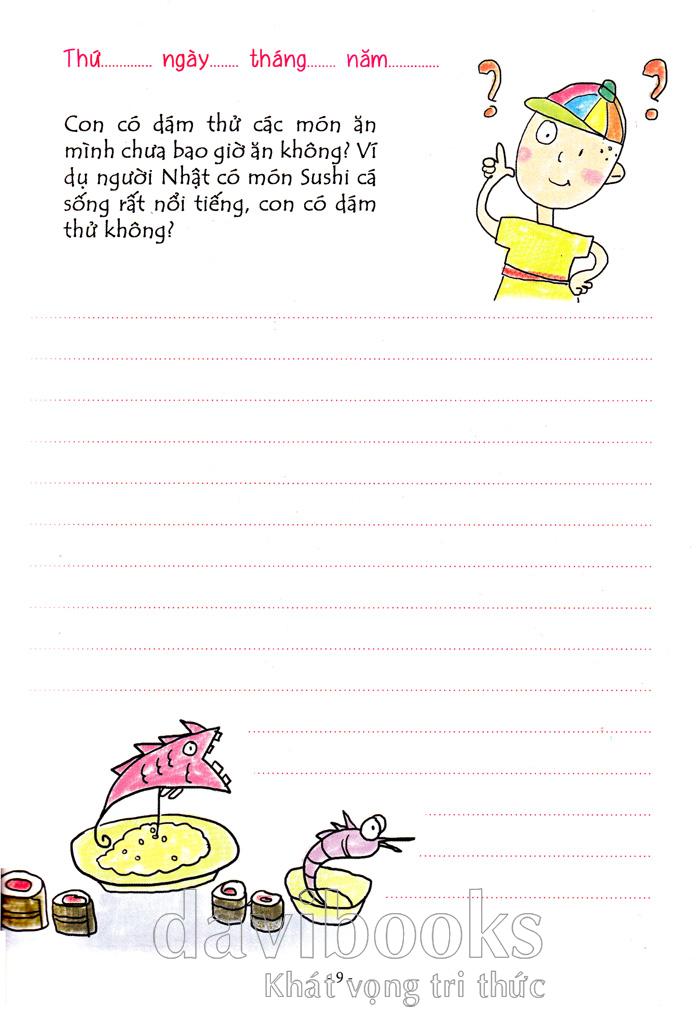 Thứ.............. ngày........ tháng........ năm..............
Con có dám thử các món ăn
mình chưa bao giờ ăn không? Ví
dụ người Nhật có món Sushi cá
sống rất nổi tiếng, con có dám
thử không?
davibooks
- 9 -
Khát vọng tri thức